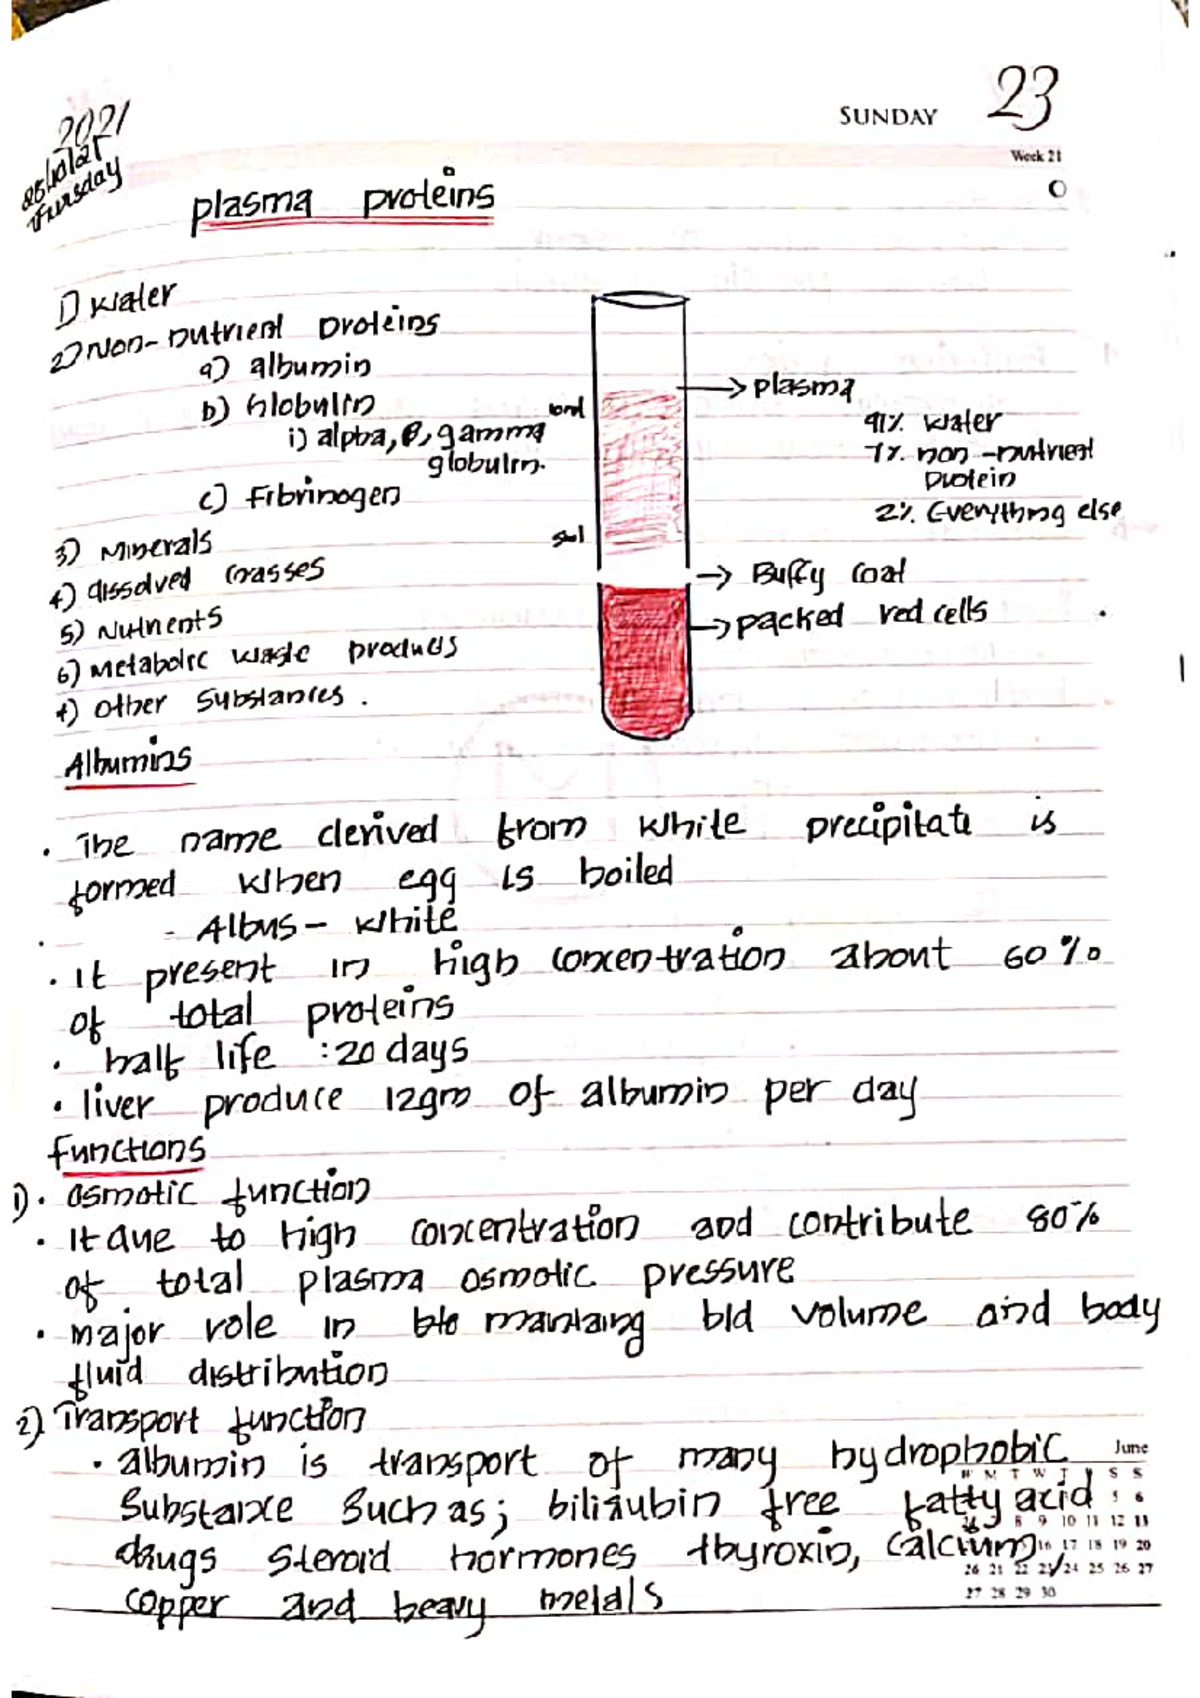 SUNDAY 23
Week 21
2021
Thursday
plasma proteins
1) Water
2) Non-nutrient proteins
a) albumin
b) Globulin
i) alpha, β, gamma
globulin.
c) Fibrinogen
3) Minerals
4) dissolved Gasses
5) Nutrients
6) Metabolic waste products
7) other Substances.
plasma
91% water
7% non-nutrient
protein
2% Everything else
Buffy coat
packed red cells
Albumins
• The name derived from white precipitate is
formed when egg is boiled
- Albus - white
• It present in high concentration about 60%
of total proteins
• half life : 20 days
• liver produce 12gm of albumin per day
functions
1) • osmotic function
• It due to high concentration and contribute 80%
of total plasma osmotic pressure
• major role in maintaing bld volume and body
fluid distribution
2) Transport function
• albumin is transport of many hydrophobic
Substance Such as; bilirubin free fatty acid
drugs steroid hormones thyroxin, calcium,
copper and heavy metals
June
W M T W T F S S
5 6
8 9 10 11 12 13
16 17 18 19 20
26 21 22 23 24 25 26 27
27 28 29 30